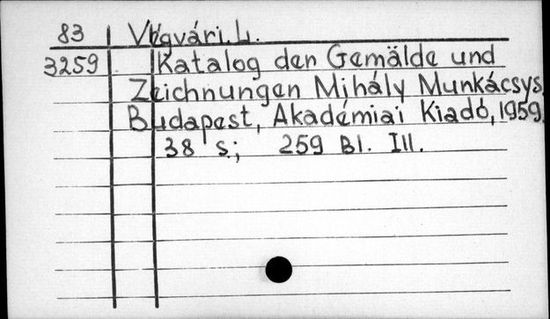 83 Végvári L.
3259 Katalog der Gemälde und
Zeichnungen Mihály Munkácsys,
Budapest, Akadémiai Kiadó, 1959.
38 s.; 259 Bl. Ill.